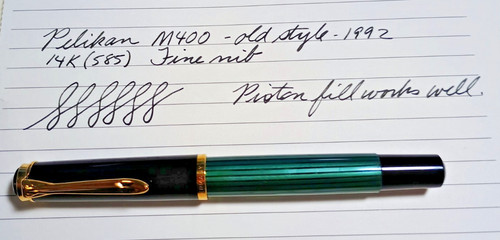 Pelikan M400 - old style - 1992
14K (585) Fine nib
Piston fill works well.